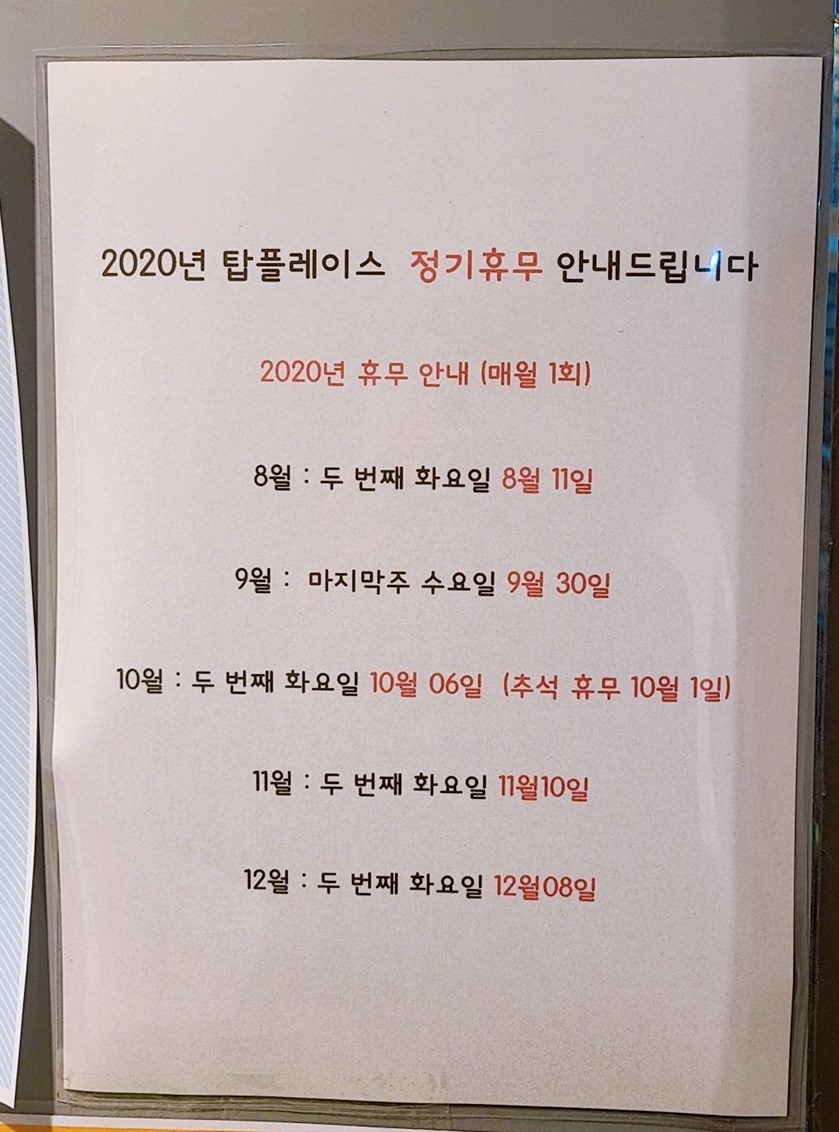 2020년 탑플레이스 정기휴무 안내드립니다
2020년 휴무 안내 (매월 1회)
8월 : 두 번째 화요일 8월 11일
9월 : 마지막주 수요일 9월 30일
10월 : 두 번째 화요일 10월 06일 (추석 휴무 10월 1일)
11월 : 두 번째 화요일 11월10일
12월 : 두 번째 화요일 12월08일